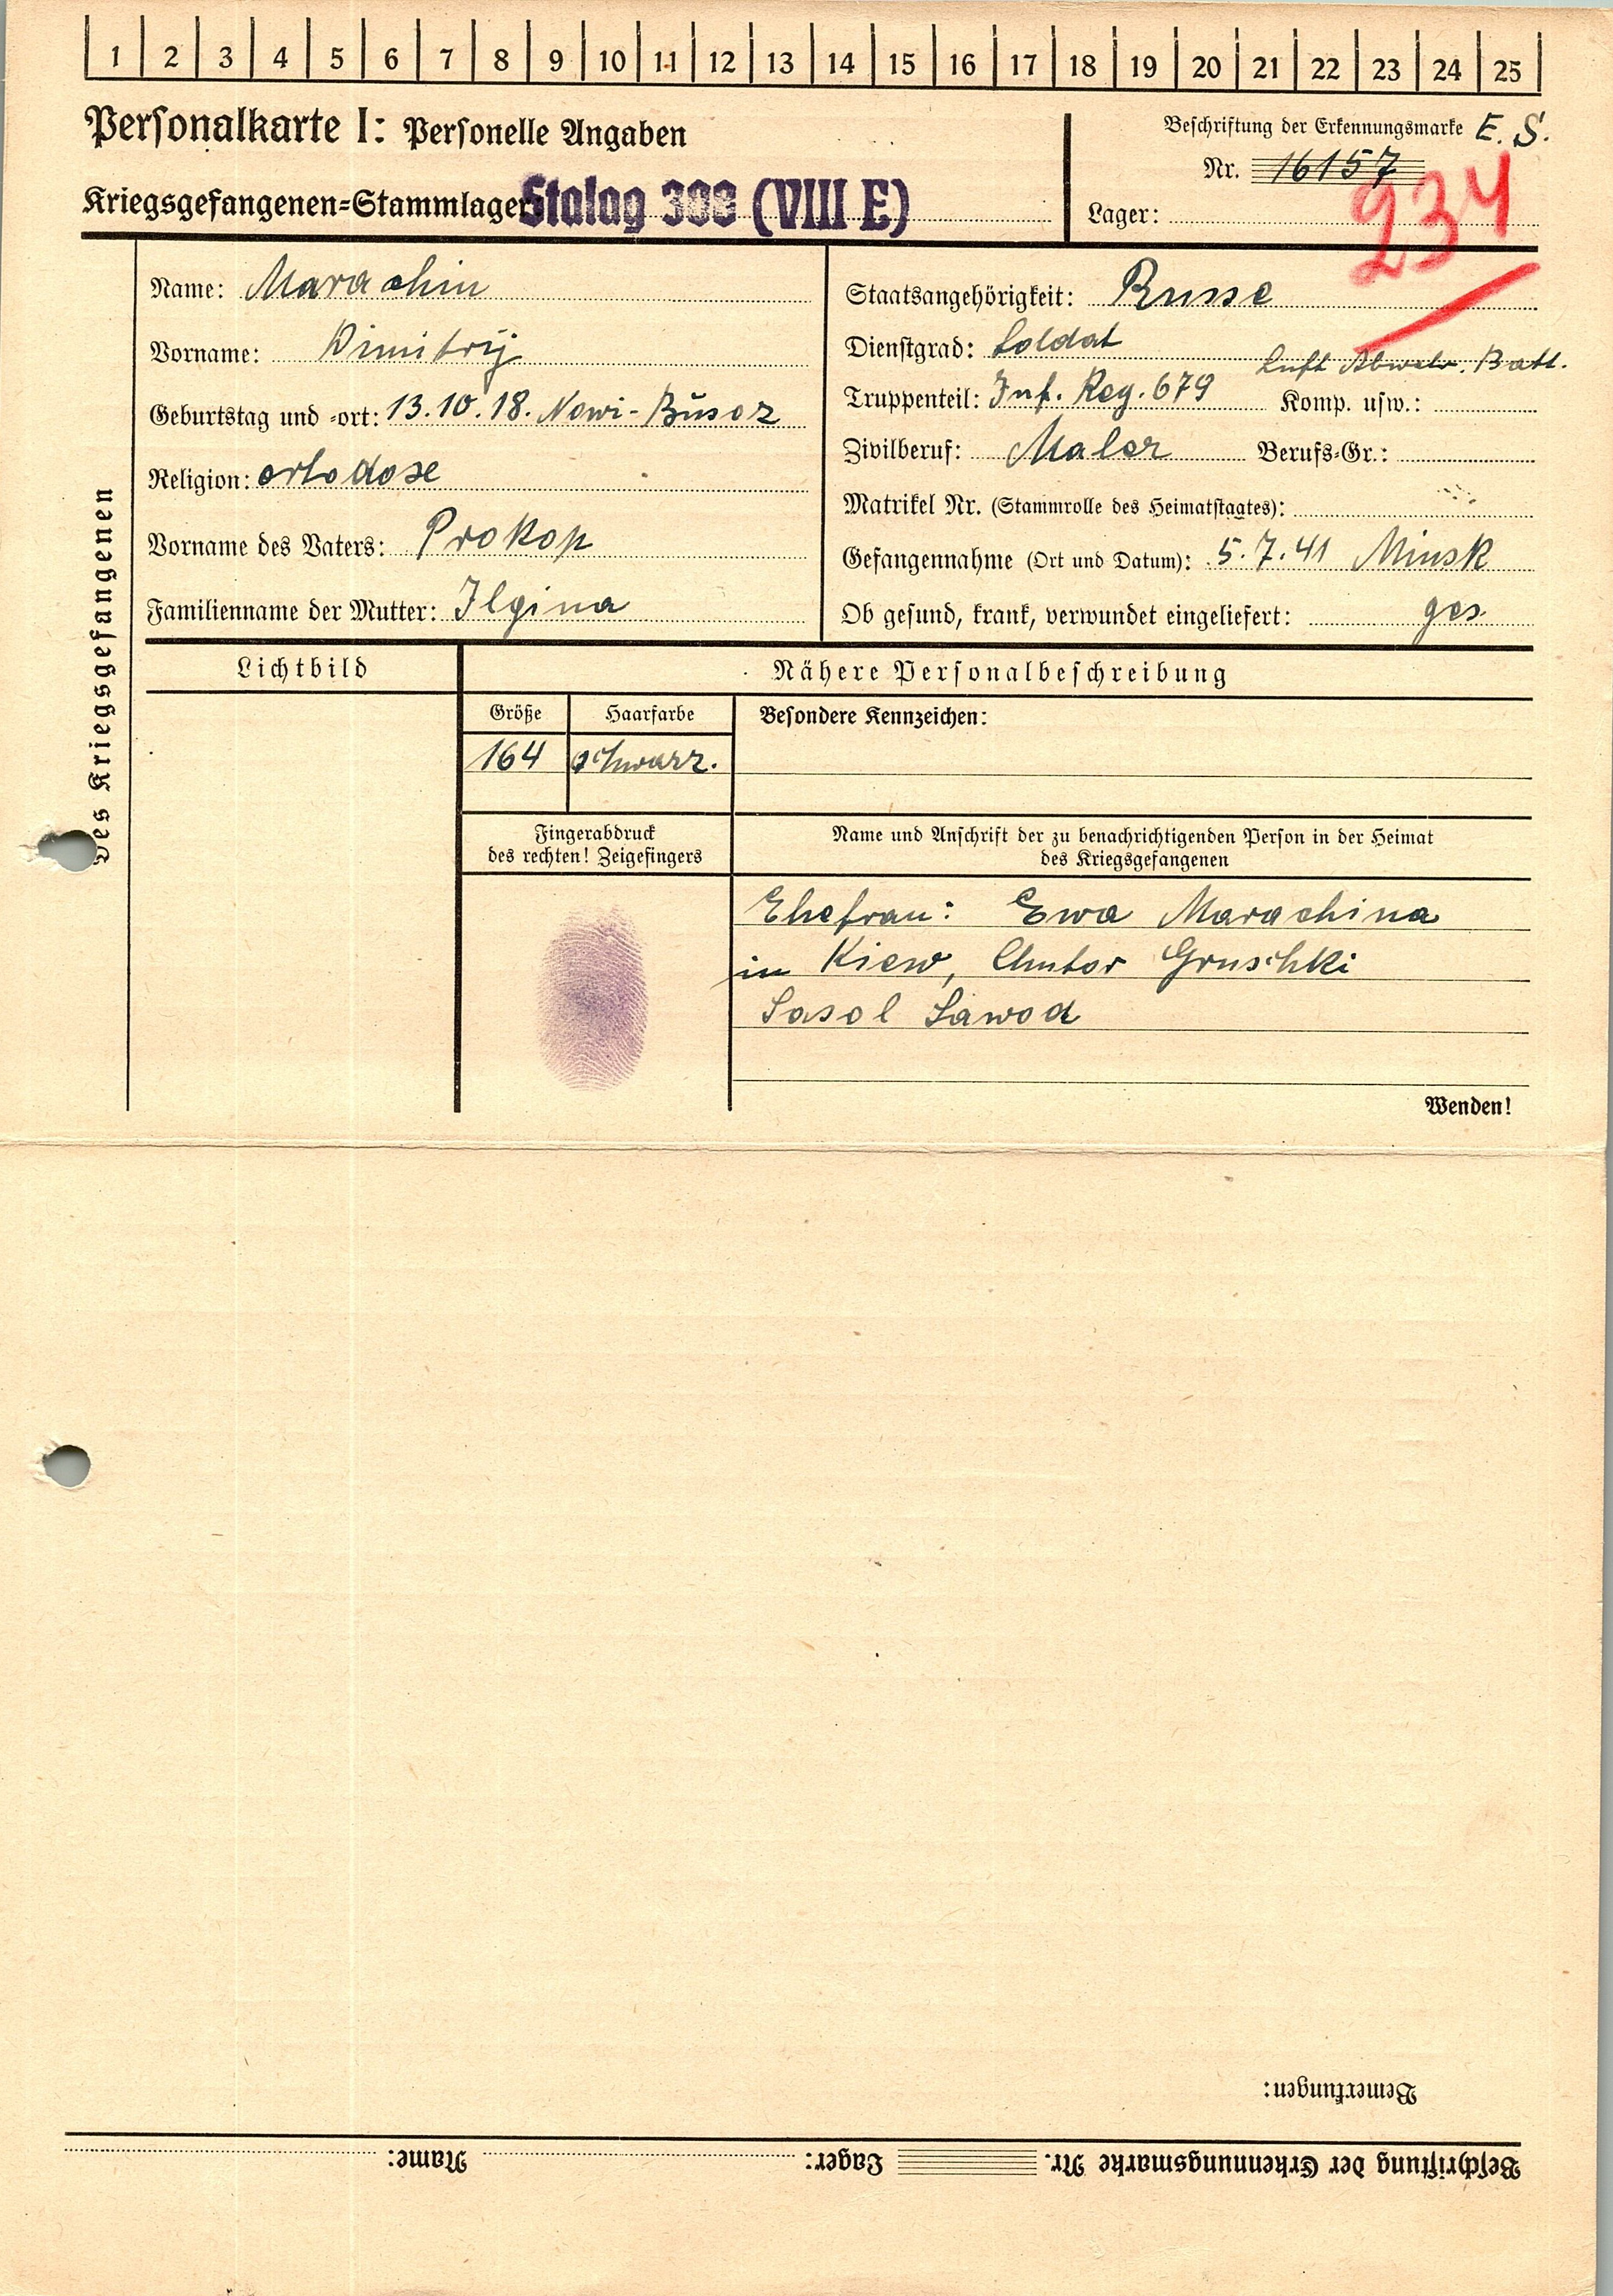 1 2 3 4 5 6 7 8 9 10 11 12 13 14 15 16 17 18 19 20 21 22 23 24 25
Personalkarte I: Personelle Angaben
Beschriftung der Erkennungsmarke E. S.
Nr. 16157
234
Kriegsgefangenen-Stammlager: Stalag 308 (VIII E)
Lager:
Des Kriegsgefangenen
Name: Marachin
Vorname: Dimitrij
Geburtstag und -ort: 13.10.18. Nowi-Busoz
Religion: ortodose
Vorname des Vaters: Prokop
Familienname der Mutter: Ilgina
Staatsangehörigkeit: Russe
Dienstgrad: Soldat
Luft Abwehr. Batl.
Truppenteil: Inf. Reg. 679 Komp. usw.:
Zivilberuf: Maler Berufs-Gr.:
Matrikel Nr. (Stammrolle des Heimatstaates):
Gefangennahme (Ort und Datum): 5.7.41 Minsk
Ob gesund, krank, verwundet eingeliefert: ges.
Lichtbild
Nähere Personalbeschreibung
Größe Haarfarbe Besondere Kennzeichen:
164 schwarz.
Fingerabdruck
des rechten! Zeigefingers
Name und Anschrift der zu benachrichtigenden Person in der Heimat
des Kriegsgefangenen
Ehefrau: Ewa Marachina
in Kiew, Chutor Gruschki
Sasol Sawod
Wenden!
Bemerkungen:
Beschriftung der Erkennungsmarke Nr. Lager: Name: